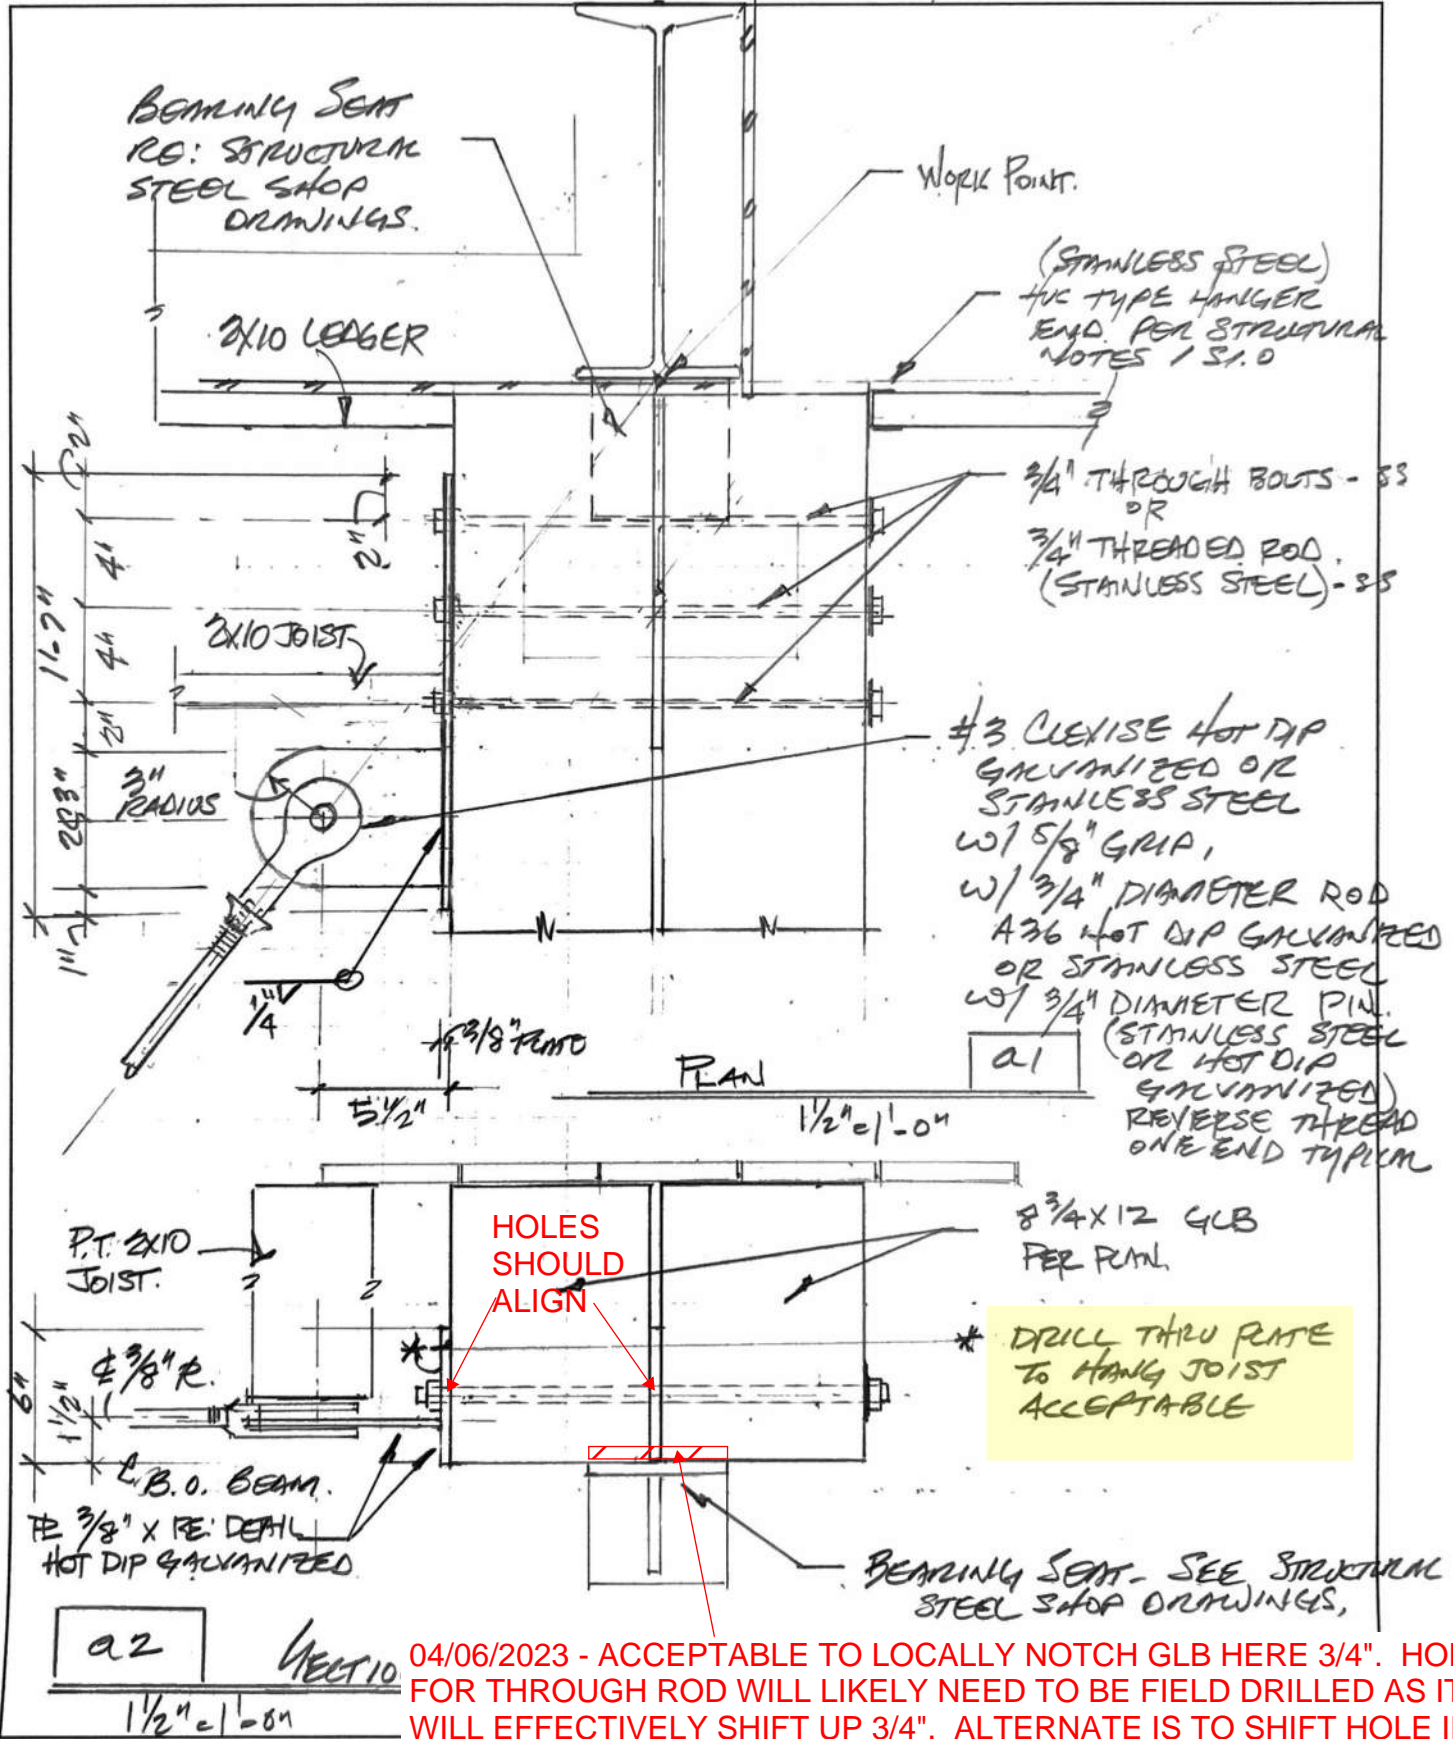 BEARING SEAT
RE: STRUCTURAL
STEEL SHOP
DRAWINGS.
WORK POINT.
(STAINLESS STEEL)
HUC TYPE HANGER
END. PER STRUCTURAL
NOTES / S1.0
2X10 LEDGER
2"
2"
4"
4"
2"
1'-7"
3/4" THROUGH BOLTS - SS
OR
3/4" THREADED ROD.
(STAINLESS STEEL) - SS
2X10 JOIST
3"
RADIUS
2@3"
1"
#3 CLEVISE HOT DIP
GALVANIZED OR
STAINLESS STEEL
W/ 5/8" GRIP,
W/ 3/4" DIAMETER ROD
A36 HOT DIP GALVANIZED
OR STAINLESS STEEL
W/ 3/4" DIAMETER PIN.
(STAINLESS STEEL
OR HOT DIP
GALVANIZED)
REVERSE THREAD
ONE END TYPICAL
1/4"
3/8" PLATE
5 1/2"
PLAN
a1
1 1/2" = 1'-0"
P.T. 2X10
JOIST.
HOLES
SHOULD
ALIGN
8 3/4 X 12 GLB
PER PLAN.
* DRILL THRU PLATE
TO HANG JOIST
ACCEPTABLE
*
℄ 3/8" PL.
6"
1 1/2"
B.O. BEAM.
PL 3/8" X RE: DETAIL
HOT DIP GALVANIZED
BEARING SEAT - SEE STRUCTURAL
STEEL SHOP DRAWINGS,
a2
SECTIO
1 1/2" = 1'-0"
04/06/2023 - ACCEPTABLE TO LOCALLY NOTCH GLB HERE 3/4". HO
FOR THROUGH ROD WILL LIKELY NEED TO BE FIELD DRILLED AS IT
WILL EFFECTIVELY SHIFT UP 3/4". ALTERNATE IS TO SHIFT HOLE I